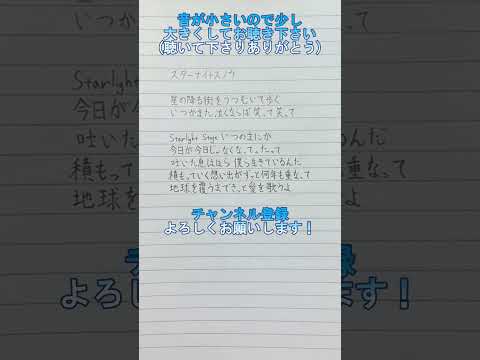 音が小さいので少し
大きくしてお聴き下さい
(聴いて下さりありがとう)
スターナイトスノウ
星の降る街をうつむいて歩く
いつかまた泣くならば笑って笑って
Starlight Stage いつのまにか
今日が今日じゃなくなってったって
吐いた息はほら 僕ら生きているんだ
積もっていく想い出がずっと何年も重なって
地球を覆うまできっと愛を歌うよ
チャンネル登録
よろしくお願いします！